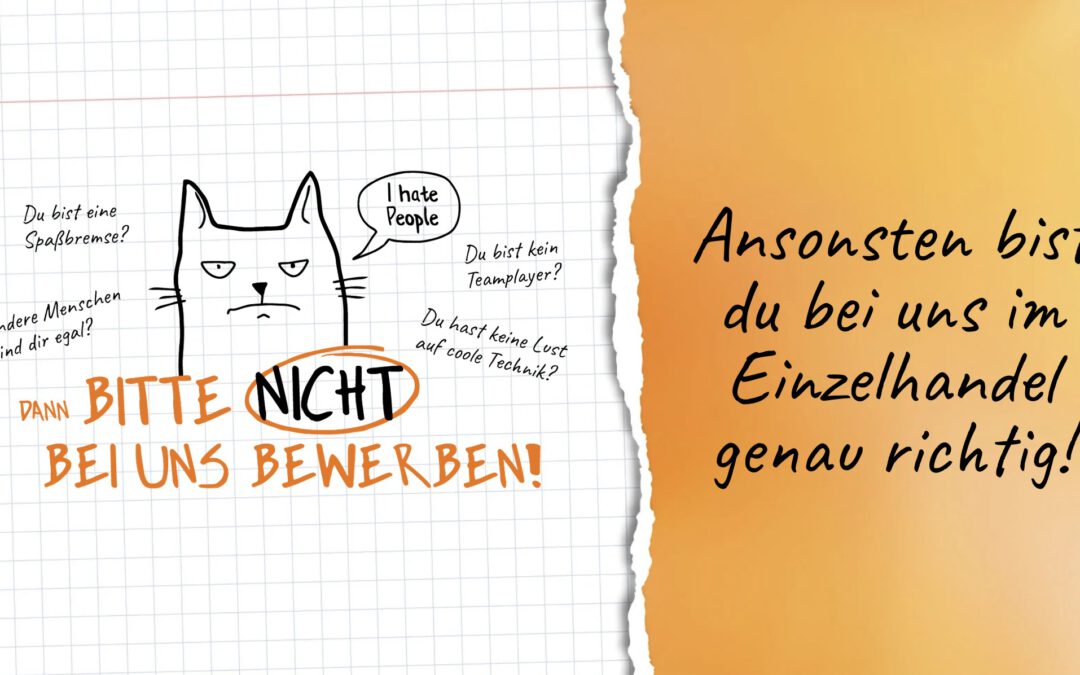 Du bist eine
Spaßbremse?
ndere Menschen
ind dir egal?
I hate
People
Du bist kein
Teamplayer?
Du hast keine Lust
auf coole Technik?
DANN BITTE NICHT
BEI UNS BEWERBEN!
Ansonsten bist
du bei uns im
Einzelhandel
genau richtig!